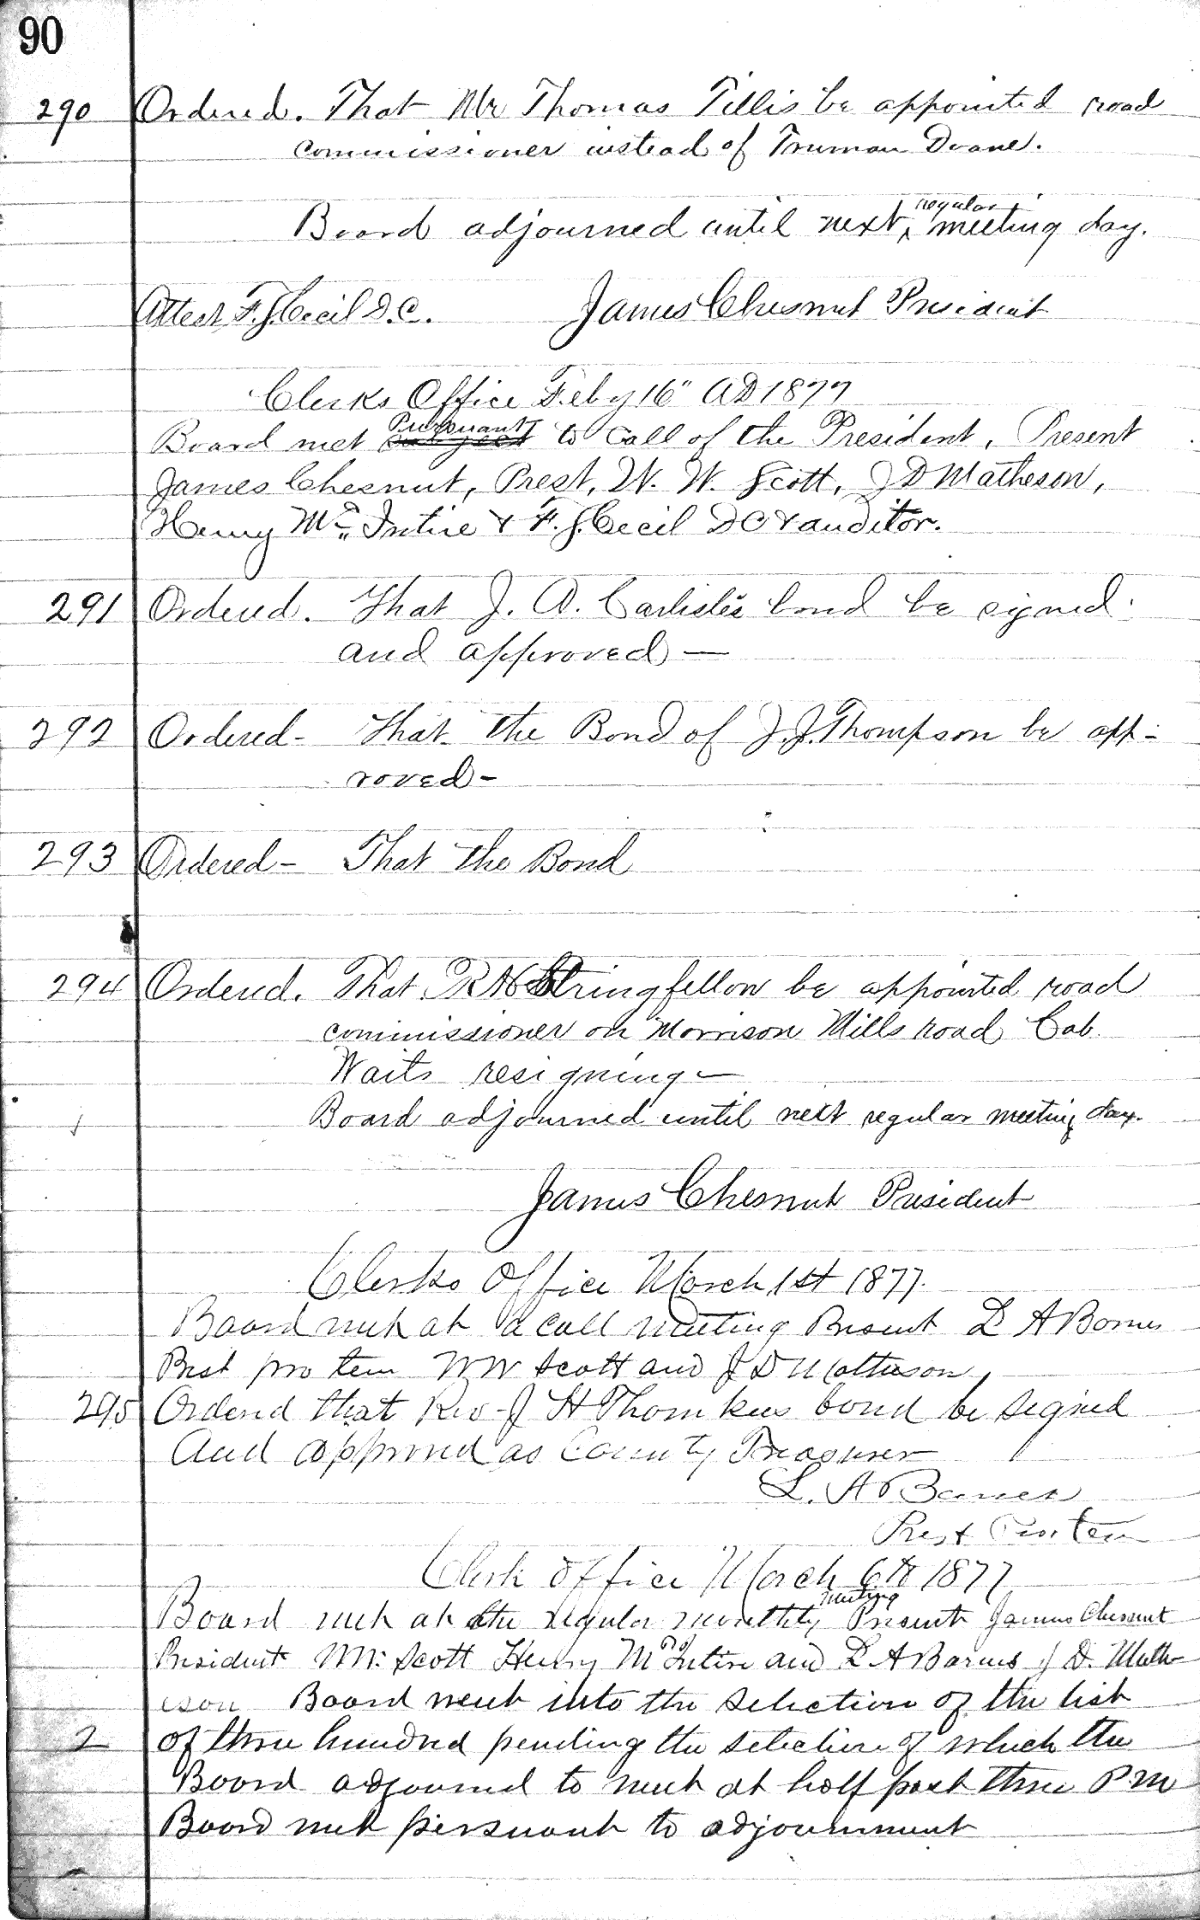 90
290 Ordered. That Mr Thomas Tillis be appointed road
commissioner instead of Truman Doane.
Board adjourned until next ^ regular meeting day.
Attest F. J. Cecil D. C. James Chesnut President
Clerks Office Feby 16" AD 1877
Board met Pursuant to Call of the President, Present
James Chesnut, Prest, W. W. Scott, J D Matheson,
Henry Mc Intire & F. J. Cecil D C & auditor.
291 Ordered. That J. A. Carlisle's bond be signed
and approved —
292 Ordered - That the Bond of J. J. Thompson be app-
roved -
293 Ordered - That the Bond
294 Ordered. That R N Stringfellow be appointed road
commissioner on Morrison Mills road Cab.
Waits resigning —
Board adjourned until next regular meeting day.
James Chesnut President
Clerks Office March 1st 1877.
Board met at a call meeting Present L A Barnes
Prest pro tem W W Scott and J D Matheson
295 Ordered that Rev J H Thomkees bond be signed
And approved as County Treasurer
L. A Barnes
Prest Pro tem
Clerk Office March 6th 1877
Board met at the regular monthly meeting Present James Chesnut
President W W. Scott Henry Mc Intire and L A Barnes J D. Math-
eson Board went into the selection of the list
2 of three hundred pending the selection of which the
Board adjourned to meet at half past three P.M
Board met persuant to adjournment